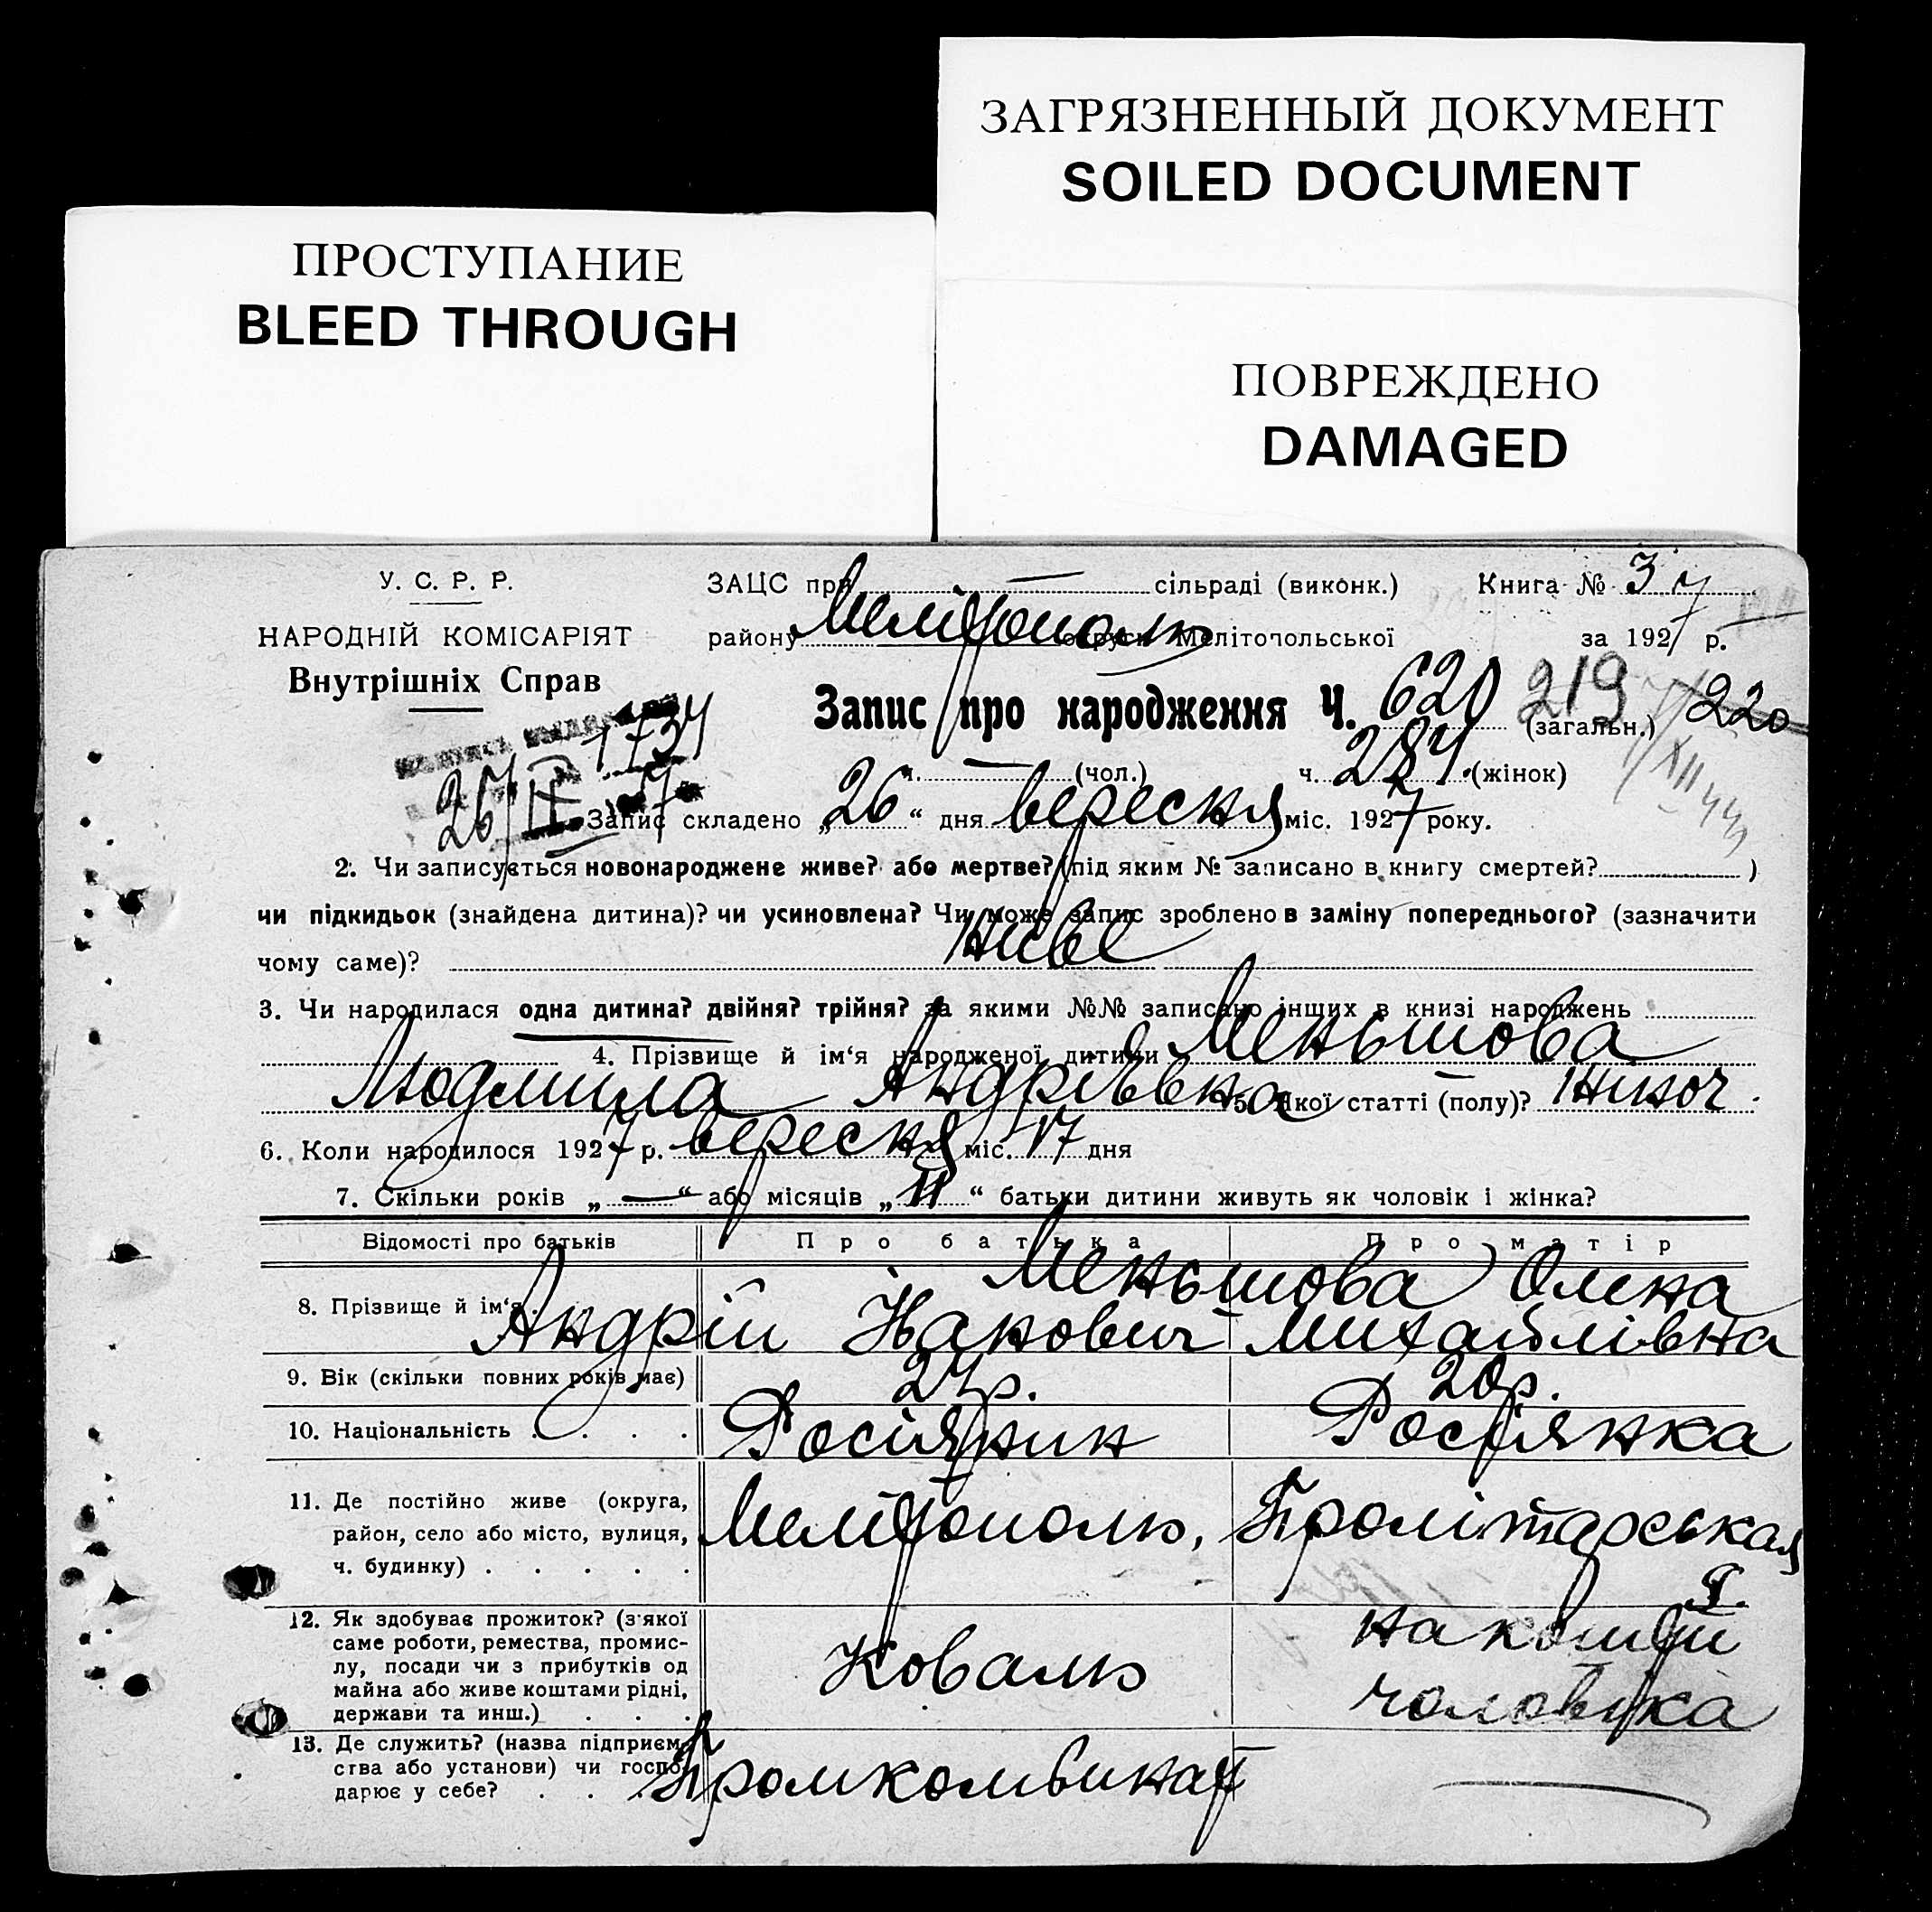 ЗАГРЯЗНЕННЫЙ ДОКУМЕНТ
SOILED DOCUMENT
ПРОСТУПАНИЕ
BLEED THROUGH
ПОВРЕЖДЕНО
DAMAGED
У. С. Р. Р.
НАРОДНІЙ КОМІСАРІЯТ
Внутрішніх Справ
ЗАЦС при — сільраді (виконк.) Книга № 3
району Мелітополь округи Мелітопольської за 1927 р.
Запис про народження Ч. 620 (загальн.) 219 220
ч. — (чол.) ч. 284 (жінок)
1734
Запис складено „26“ дня вересня міс. 1927 року.
2. Чи записується новонароджене живе? або мертве? (під яким № записано в книгу смертей? )
чи підкидьок (знайдена дитина)? чи усиновлена? Чи може запис зроблено в заміну попереднього? (зазначити
чому саме)? живе
3. Чи народилася одна дитина? двійня? трійня? за якими №№ записано інших в книзі народжень
4. Прізвище й ім‘я народженої дитини Меньшова
Людмила Андріівна 5. Якої статті (полу)? жіноч.
6. Коли народилося 1927 р. вересня міс. 17 дня
7. Скільки років „—“ або місяців „11“ батьки дитини живуть як чоловік і жінка?
Відомості про батьків Про батька Про матір
8. Прізвище й ім‘я . Андрій Іванович Меньшова Олена Михайлівна
9. Вік (скільки повних років має) 24р. 20р.
10. Національність . . . . Росіянин Росіянка
11. Де постійно живе (округа,
район, село або місто, вулиця,
ч. будинку) . . . . .
Мелітополь, Пролітарськая
12. Як здобуває прожиток? (з якої
саме роботи, ремества, промис-
лу, посади чи з прибутків од
майна або живе коштами рідні,
держави та инш.) . . .
Коваль
на кошті
чоловіка
13. Де служить? (назва підприєм-
ства або установи) чи госпо-
дарює у себе? . . .
Промкомбинат —